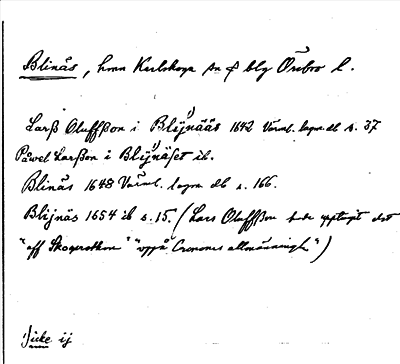 Blinås, hmn Karlskoga sn & blg Örebro l.
Larß Oluffßon i Blijnääs 1642 Värml. lagm. db s. 37
Påwel Larßon i Blijnäset ib.
Blinäs 1648 Värml. lagm db s. 166.
Blijnäs 1654 ib s. 15. (Lars Oluffßon hade upptagit det
"aff Skogerothom" "vppå Cronones allmänningh")
icke ij